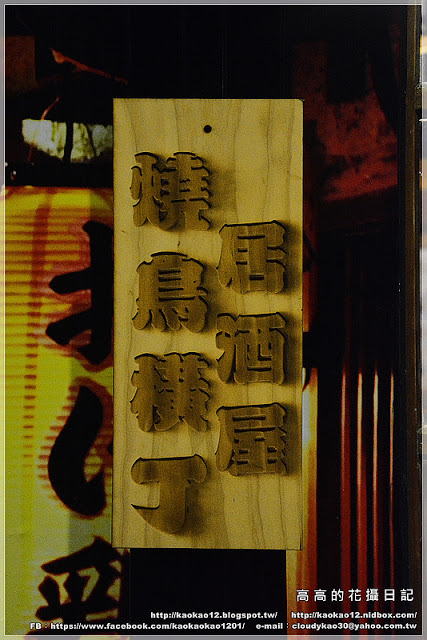 居酒屋
燒鳥橫丁
高高的花攝日記
http://kaokao12.blogspot.tw/ http://kaokao12.nidbox.com/
FB - https://www.facebook.com/kaokaokao1201/ e-mail : cloudykao30@yahoo.com.tw